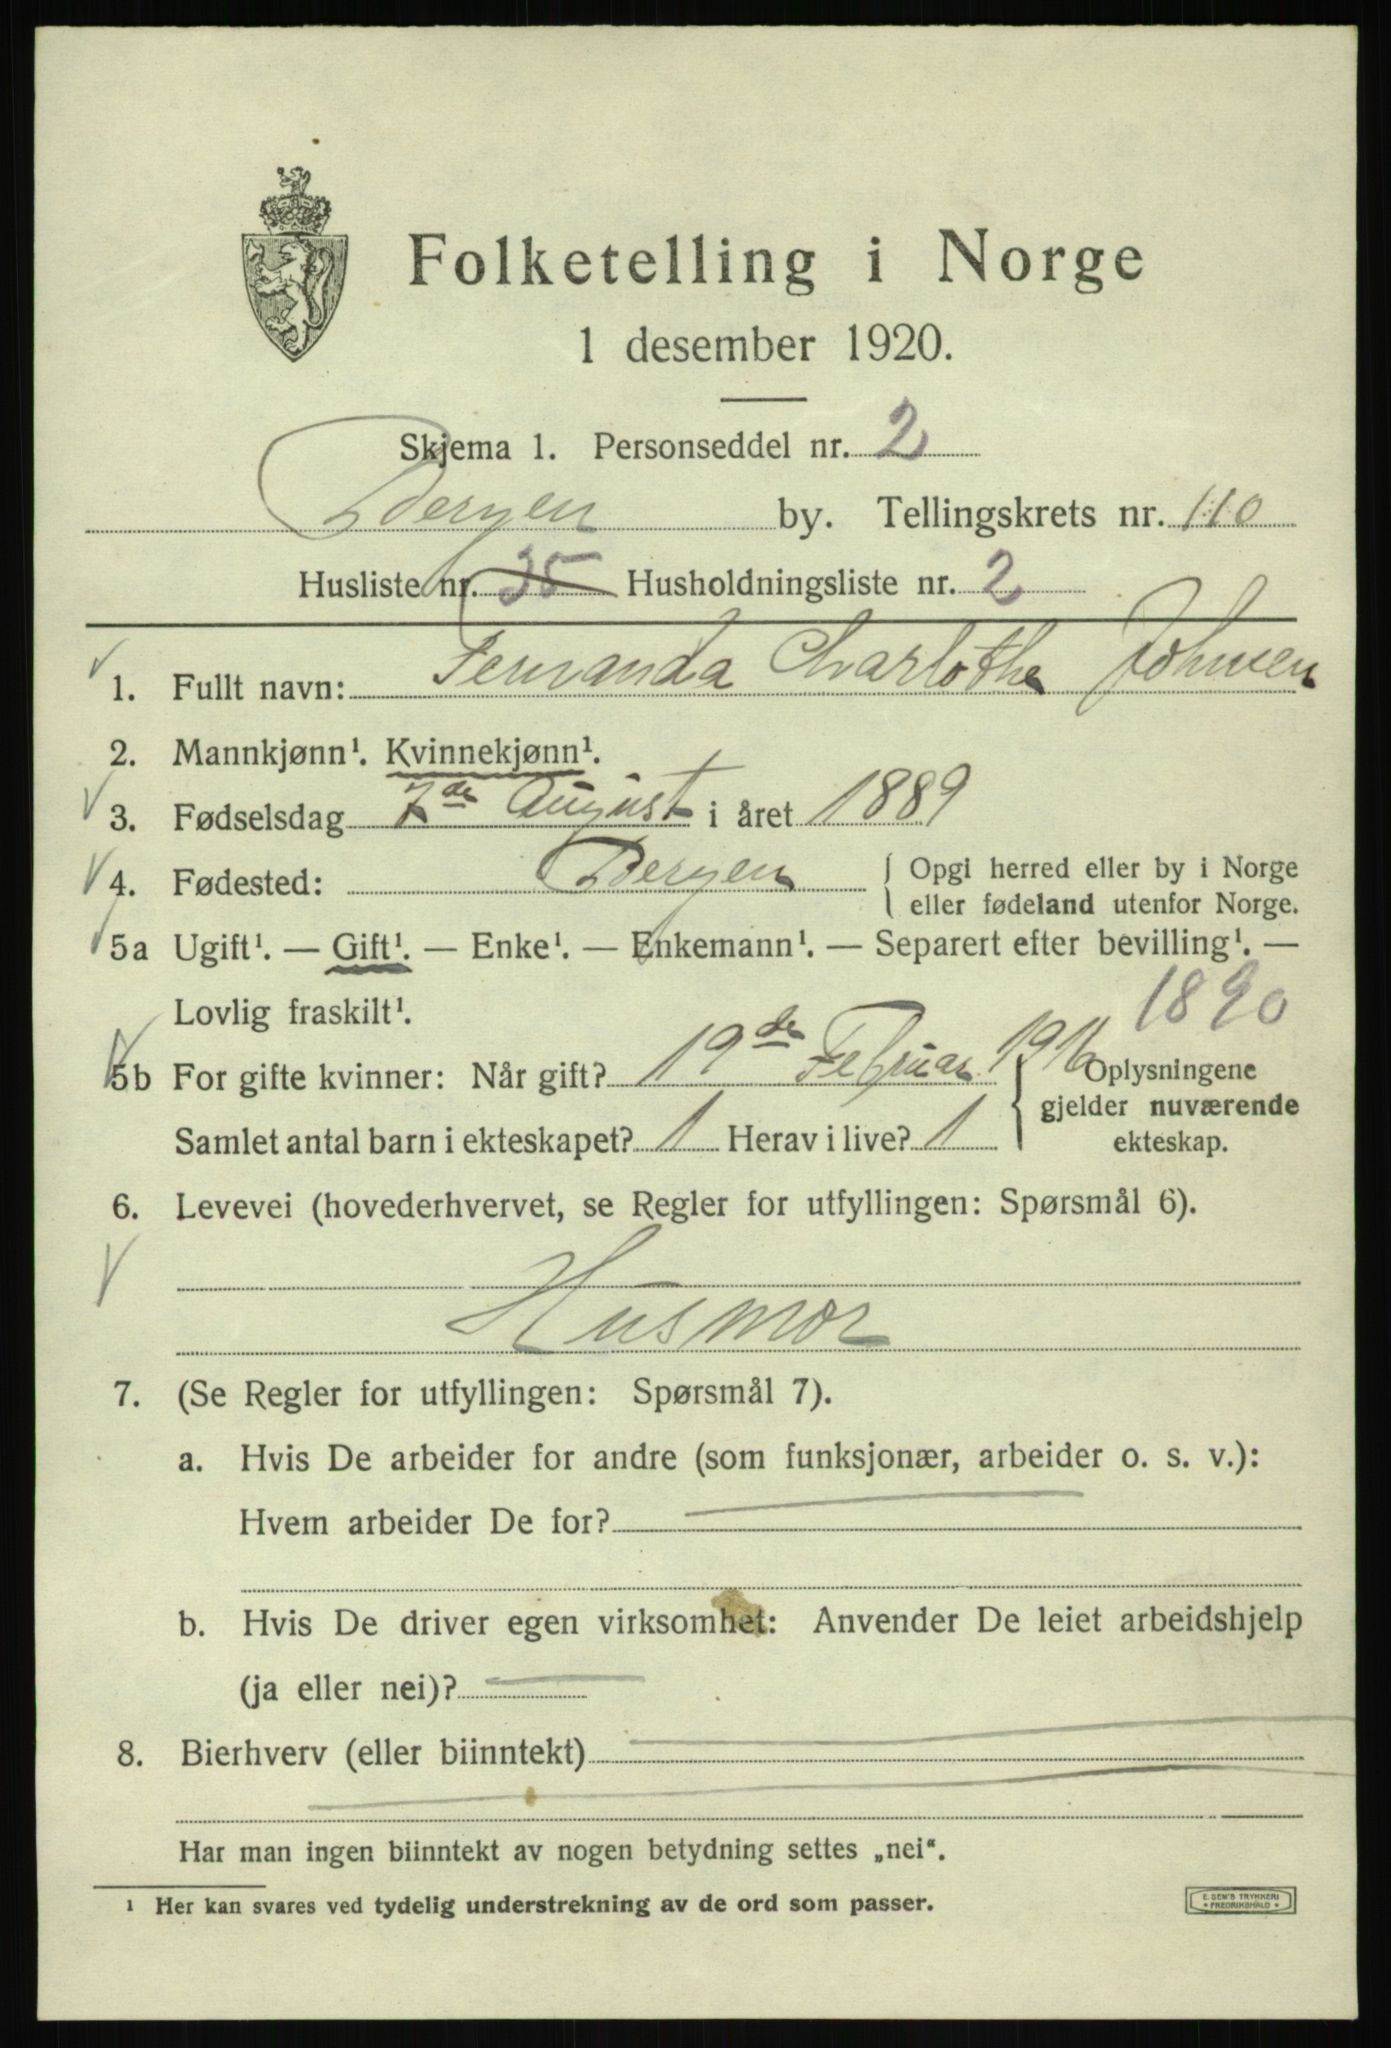 Folketelling i Norge
1 desember 1920.
Skjema 1. Personseddel nr. 2
Bergen by. Tellingskrets nr. 110
Husliste nr. 35 Husholdningsliste nr. 2
1. Fullt navn: Fernanda Charlothe Johnsen
2. Mannkjønn¹. Kvinnekjønn¹.
3. Fødselsdag 7de August i året 1889
4. Fødested: Bergen { Opgi herred eller by i Norge
eller fødeland utenfor Norge.
5a Ugift¹. — Gift¹. — Enke¹. — Enkemann¹. — Separert efter bevilling¹. —
Lovlig fraskilt¹. 1890
5b For gifte kvinner: Når gift? 19de Februar 1916
Samlet antal barn i ekteskapet? 1 Herav i live? 1
{ Oplysningene
gjelder nuværende
ekteskap.
6. Levevei (hovederhvervet, se Regler for utfyllingen: Spørsmål 6).
Husmor
7. (Se Regler for utfyllingen: Spørsmål 7).
a. Hvis De arbeider for andre (som funksjonær, arbeider o. s. v.):
Hvem arbeider De for?
b. Hvis De driver egen virksomhet: Anvender De leiet arbeidshjelp
(ja eller nei)?
8. Bierhverv (eller biinntekt)
Har man ingen biinntekt av nogen betydning settes „nei“.
¹ Her kan svares ved tydelig understrekning av de ord som passer.
E. SEM'S TRYKKERI
* FREDRIKSHALD *